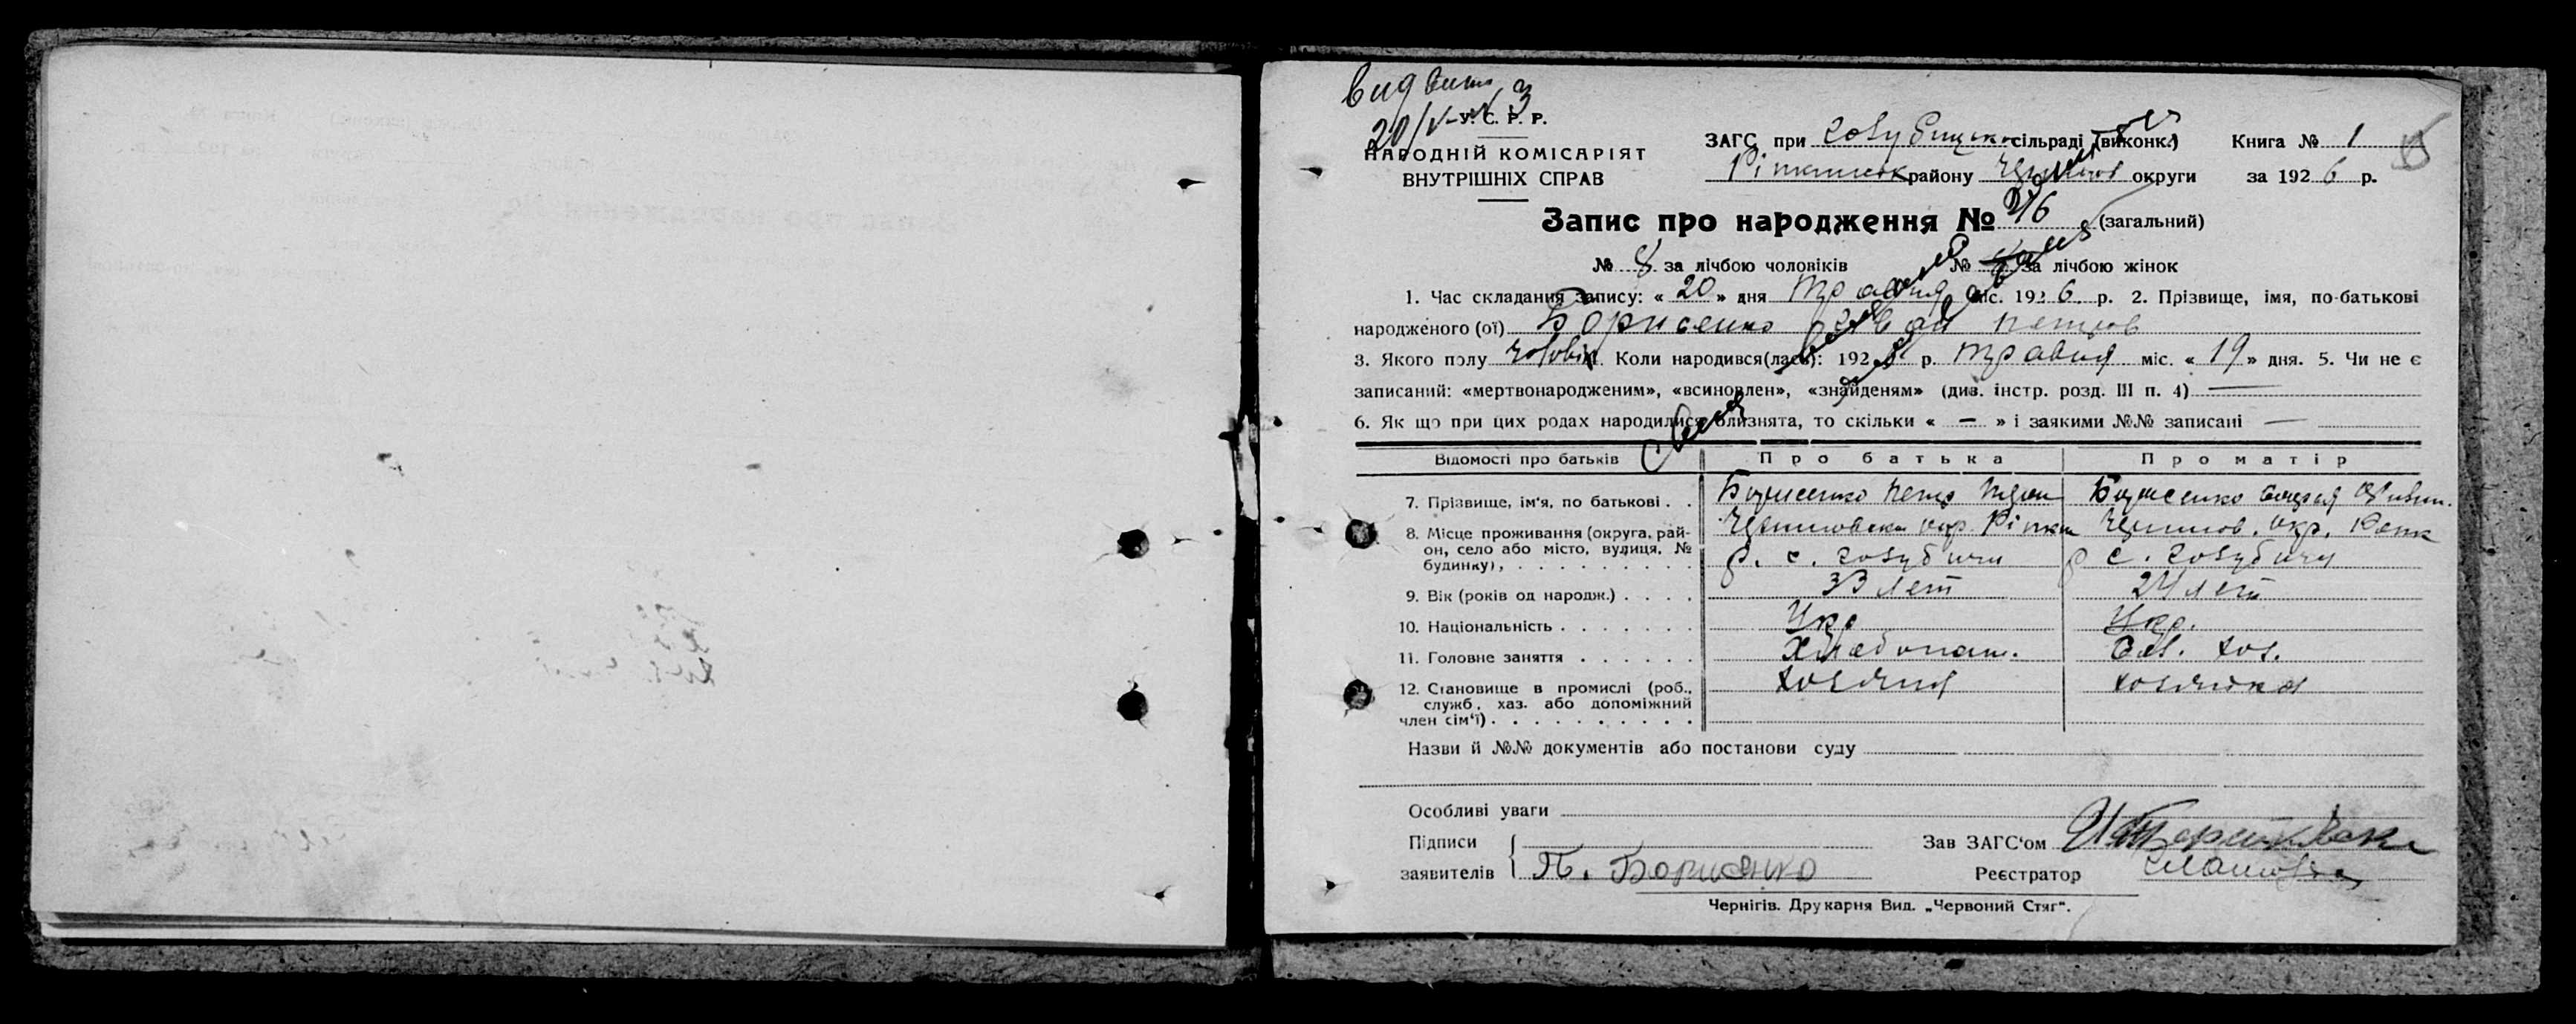 Вид. вип.
20/V-
У. С. Р. Р.
НАРОДНІЙ КОМІСАРІЯТ
ВНУТРІШНІХ СПРАВ
ЗАГС при Голубицько сільраді (виконк.)
Ріпкинськ району Черниговс округи
Книга № 1
за 1926 р.
Запис про народження № 16 (загальний)
№ 8 за лічбою чоловіків № за лічбою жінок
1. Час складання запису: « 20 » дня Травня міс. 1926. р. 2. Прізвище, імя, по-батькові
народженого (ої) Борисенко Іван Петров
3. Якого полу чоловік Коли народився(лась): 1926 р. Травня міс. « 19 » дня. 5. Чи не є
записаний: «мертвонародженим», «всиновлен», «знайденям» (див. інстр. розд. III п. 4) —
6. Як що при цих родах народилися близнята, то скільки « — » і заякими №№ записані —
Відомості про батьків Про батька Про матір
7. Прізвище, ім'я, по батькові . . Борисенко Петр Борисенко
8. Місце проживання (округа, рай- Черниговска окр. Ріпкин Чернигов. окр. Репк
он, село або місто, вулиця, № р. с. Голубичи р с. Голубичи
будинку), . . . . . . . . . .
9. Вік (років од народж.) . . . . 33 лет 24 лет
10. Національність . . . . . . . Укр Укр.
11. Головне заняття . . . . . . Хлебопаш. хоз.
12. Становище в промислі (роб., хозяин хозяйка
служб, хаз. або допоміжний
член сім'ї) . . . . . . . . . .
Назви й №№ документів або постанови суду
Особливі уваги
Підписи
заявителів П. Борисенко
Зав ЗАГС'ом
Реєстратор
Чернігів. Друкарня Вид. „Червоний Стяг".